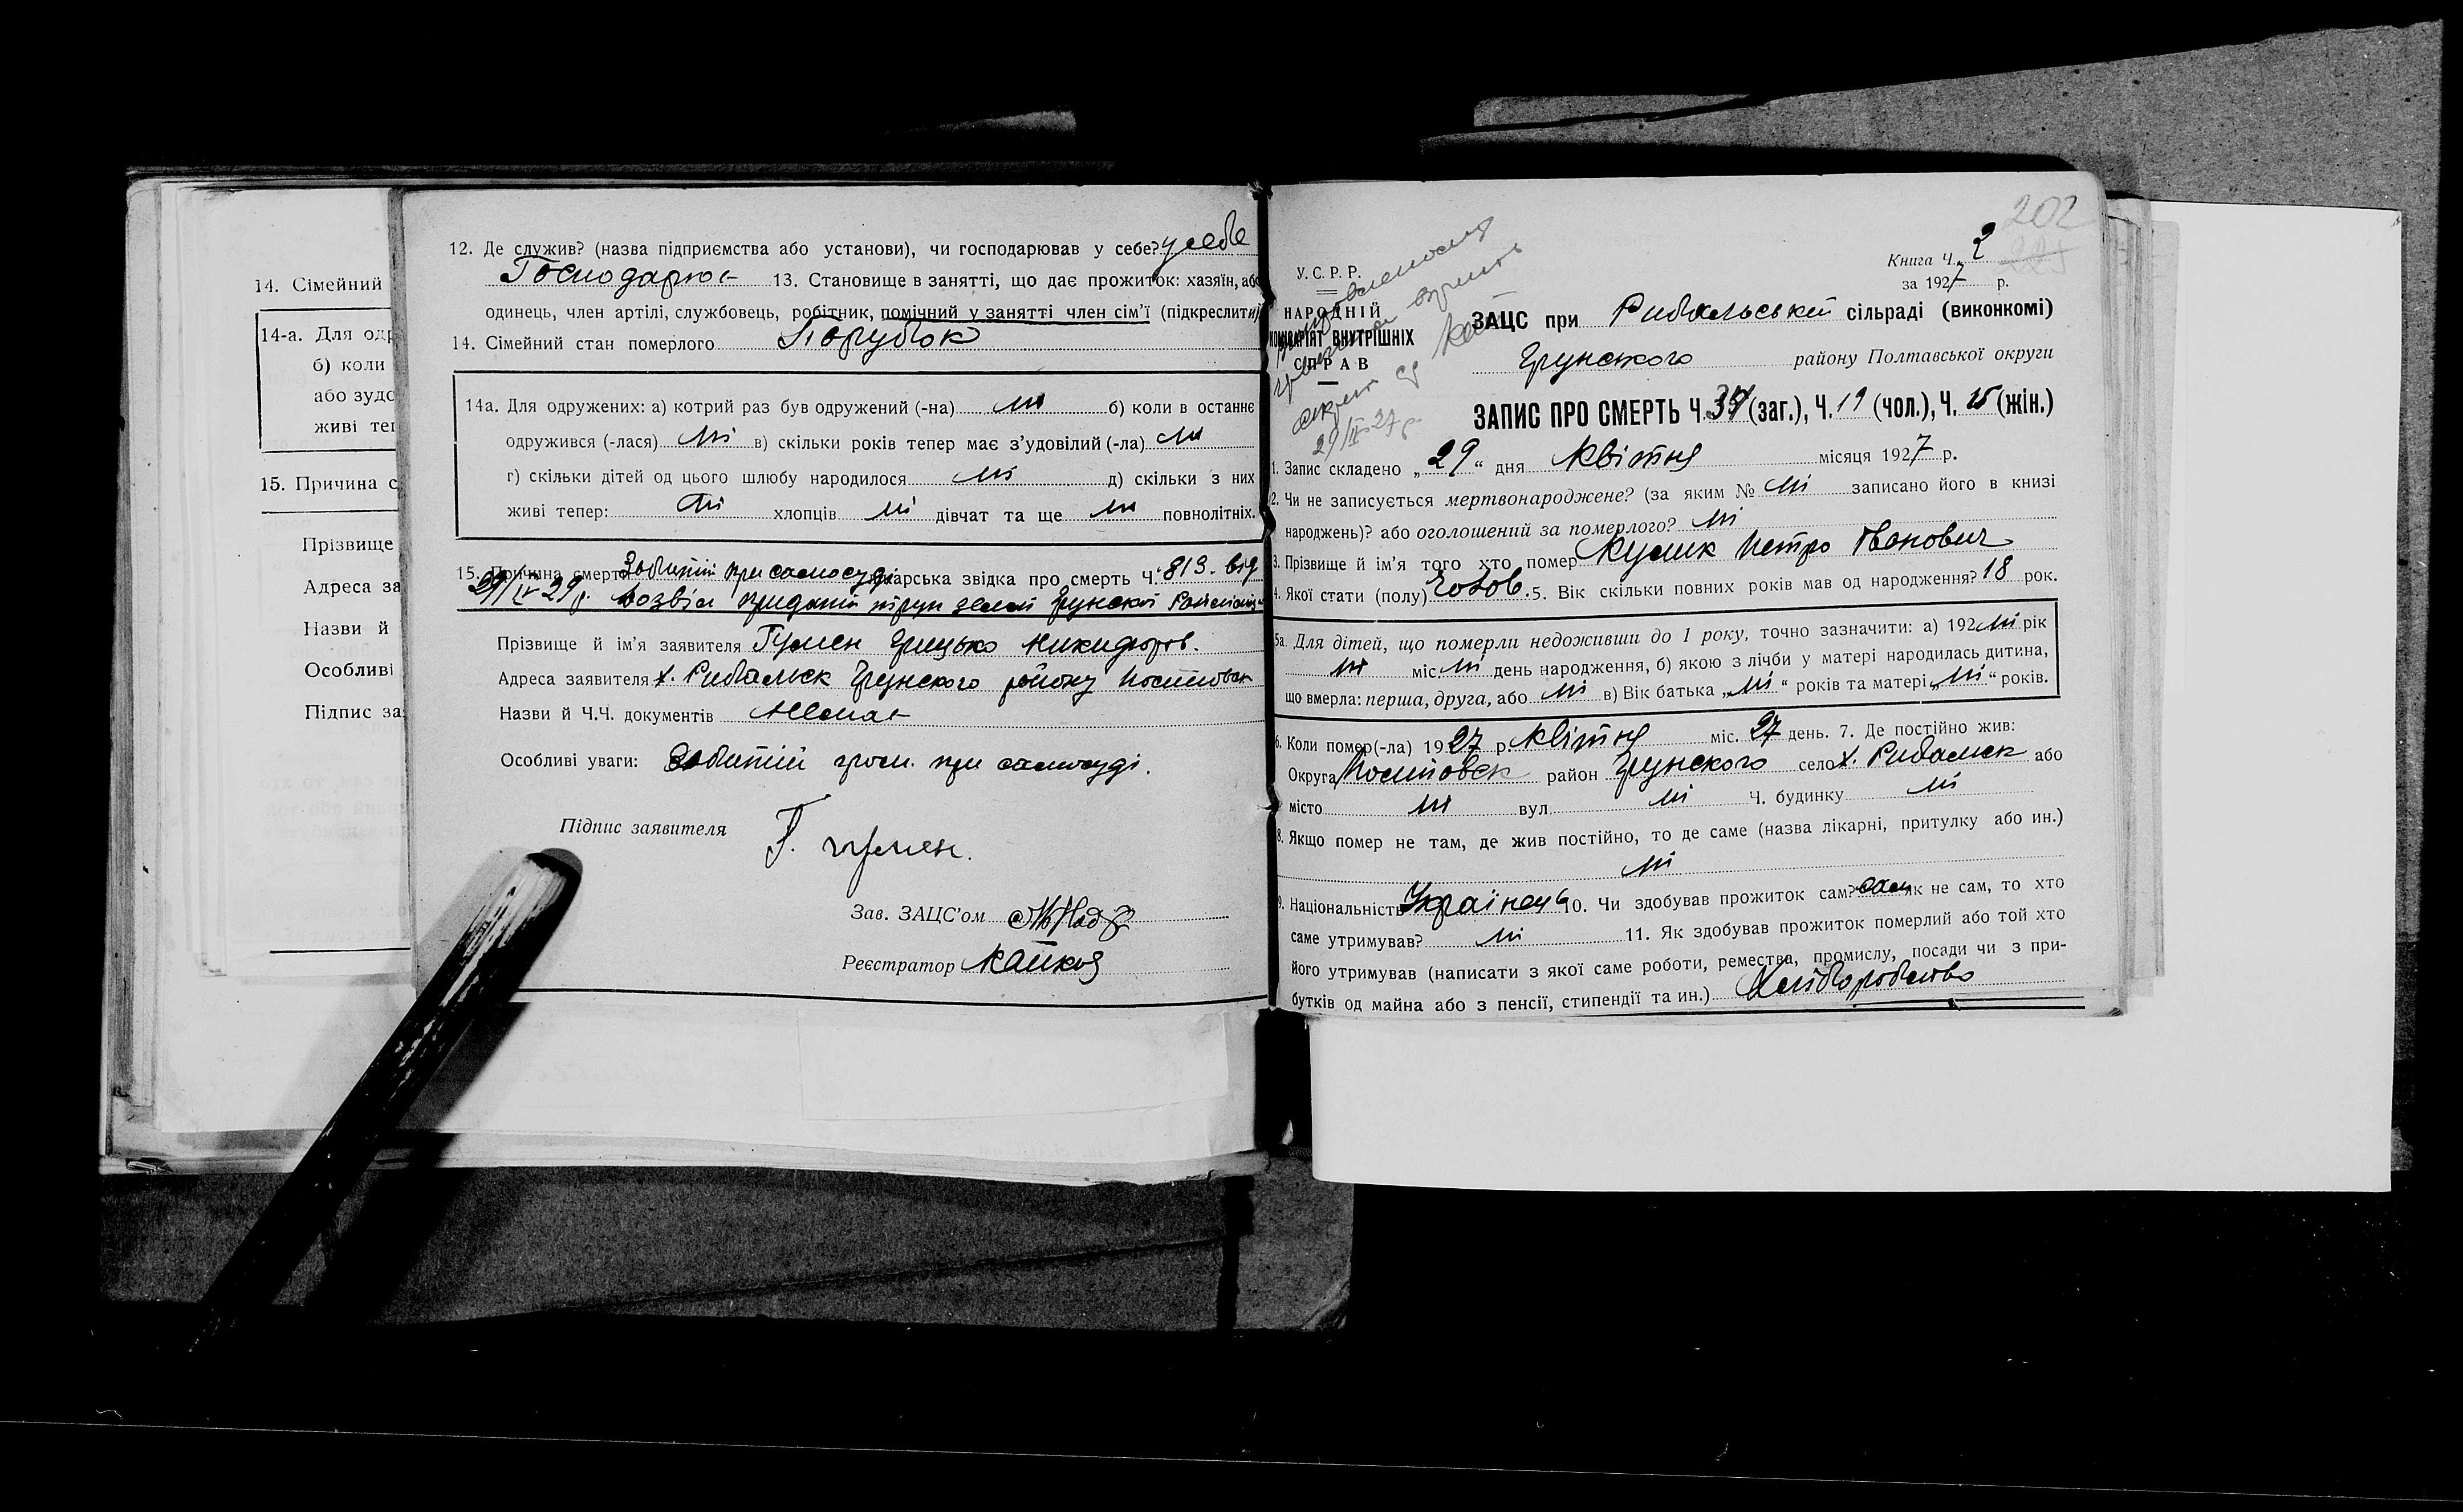 14. Сімейний
14-а. Для одр
б) коли
або зудо
живі теп
15. Причина с
Прізвище
Адреса за
Назви й
Особливі
Підпис за
12. Де служив? (назва підприємства або установи), чи господарював у себе? у себе
13. Становище в занятті, що дає прожиток: хазяїн, або
одинець, член артілі, службовець, робітник, помічний у занятті член сім’ї (підкреслити)
14. Сімейний стан померлого Парубок
14а. Для одружених: а) котрий раз був одружений (-на) ні б) коли в останнє
одружився (-лася) ні в) скільки років тепер має з’удовілий (-ла) ні
г) скільки дітей од цього шлюбу народилося ні д) скільки з них
живі тепер: ні хлопців ні дівчат та ще ні повнолітніх.
15. Причина смерти при самосуді лікарська звідка про смерть Ч. 813. від
29/IV 29 р.
Прізвище й ім’я заявителя Гумен Грицько Никифоров.
Адреса заявителя х. Рибальск Грунского району
Назви й Ч.Ч. документів Немає
Особливі уваги: при самосуді.
Підпис заявителя Г. Гумен.
Зав. ЗАЦС’ом
Реєстратор
202
Книга Ч. 2
за 1927 р.
У. С. Р. Р.
НАРОДНІЙ
КОМІСАРІЯТ ВНУТРІШНІХ
СПРАВ
29/IV 27 р
ЗАЦС при Рибальській сільраді (виконкомі)
Грунського району Полтавської округи
ЗАПИС ПРО СМЕРТЬ Ч. 34 (заг.), Ч. 19 (чол.), Ч. 15 (жін.)
1. Запис складено „29“ дня Квітня місяця 1927 р.
2. Чи не записується мертвонароджене? (за яким № ні записано його в книзі
народжень)? або оголошений за померлого? ні
3. Прізвище й ім’я того хто помер Кулик Петро Іванович
4. Якої стати (полу) Чолов. 5. Вік скільки повних років мав од народження? 18 рок.
5а. Для дітей, що померли недоживши до 1 року, точно зазначити: а) 192 ні рік
ні міс. ні день народження, б) якою з лічби у матері народилась дитина,
що вмерла: перша, друга, або ні в) Вік батька „ні“ років та матері „ні“ років.
6. Коли помер(-ла) 1927 р. Квітня міс. 27 день. 7. Де постійно жив:
Округа район Грунского село х. Рибальск або
місто ні вул. ні Ч. будинку ні
8. Якщо помер не там, де жив постійно, то де саме (назва лікарні, притулку або ин.)
ні
9. Національність Українець 10. Чи здобував прожиток сам? сам як не сам, то хто
саме утримував? ні 11. Як здобував прожиток померлий або той хто
його утримував (написати з якої саме роботи, ремества, промислу, посади чи з при-
бутків од майна або з пенсії, стипендії та ин.) Хліборобство